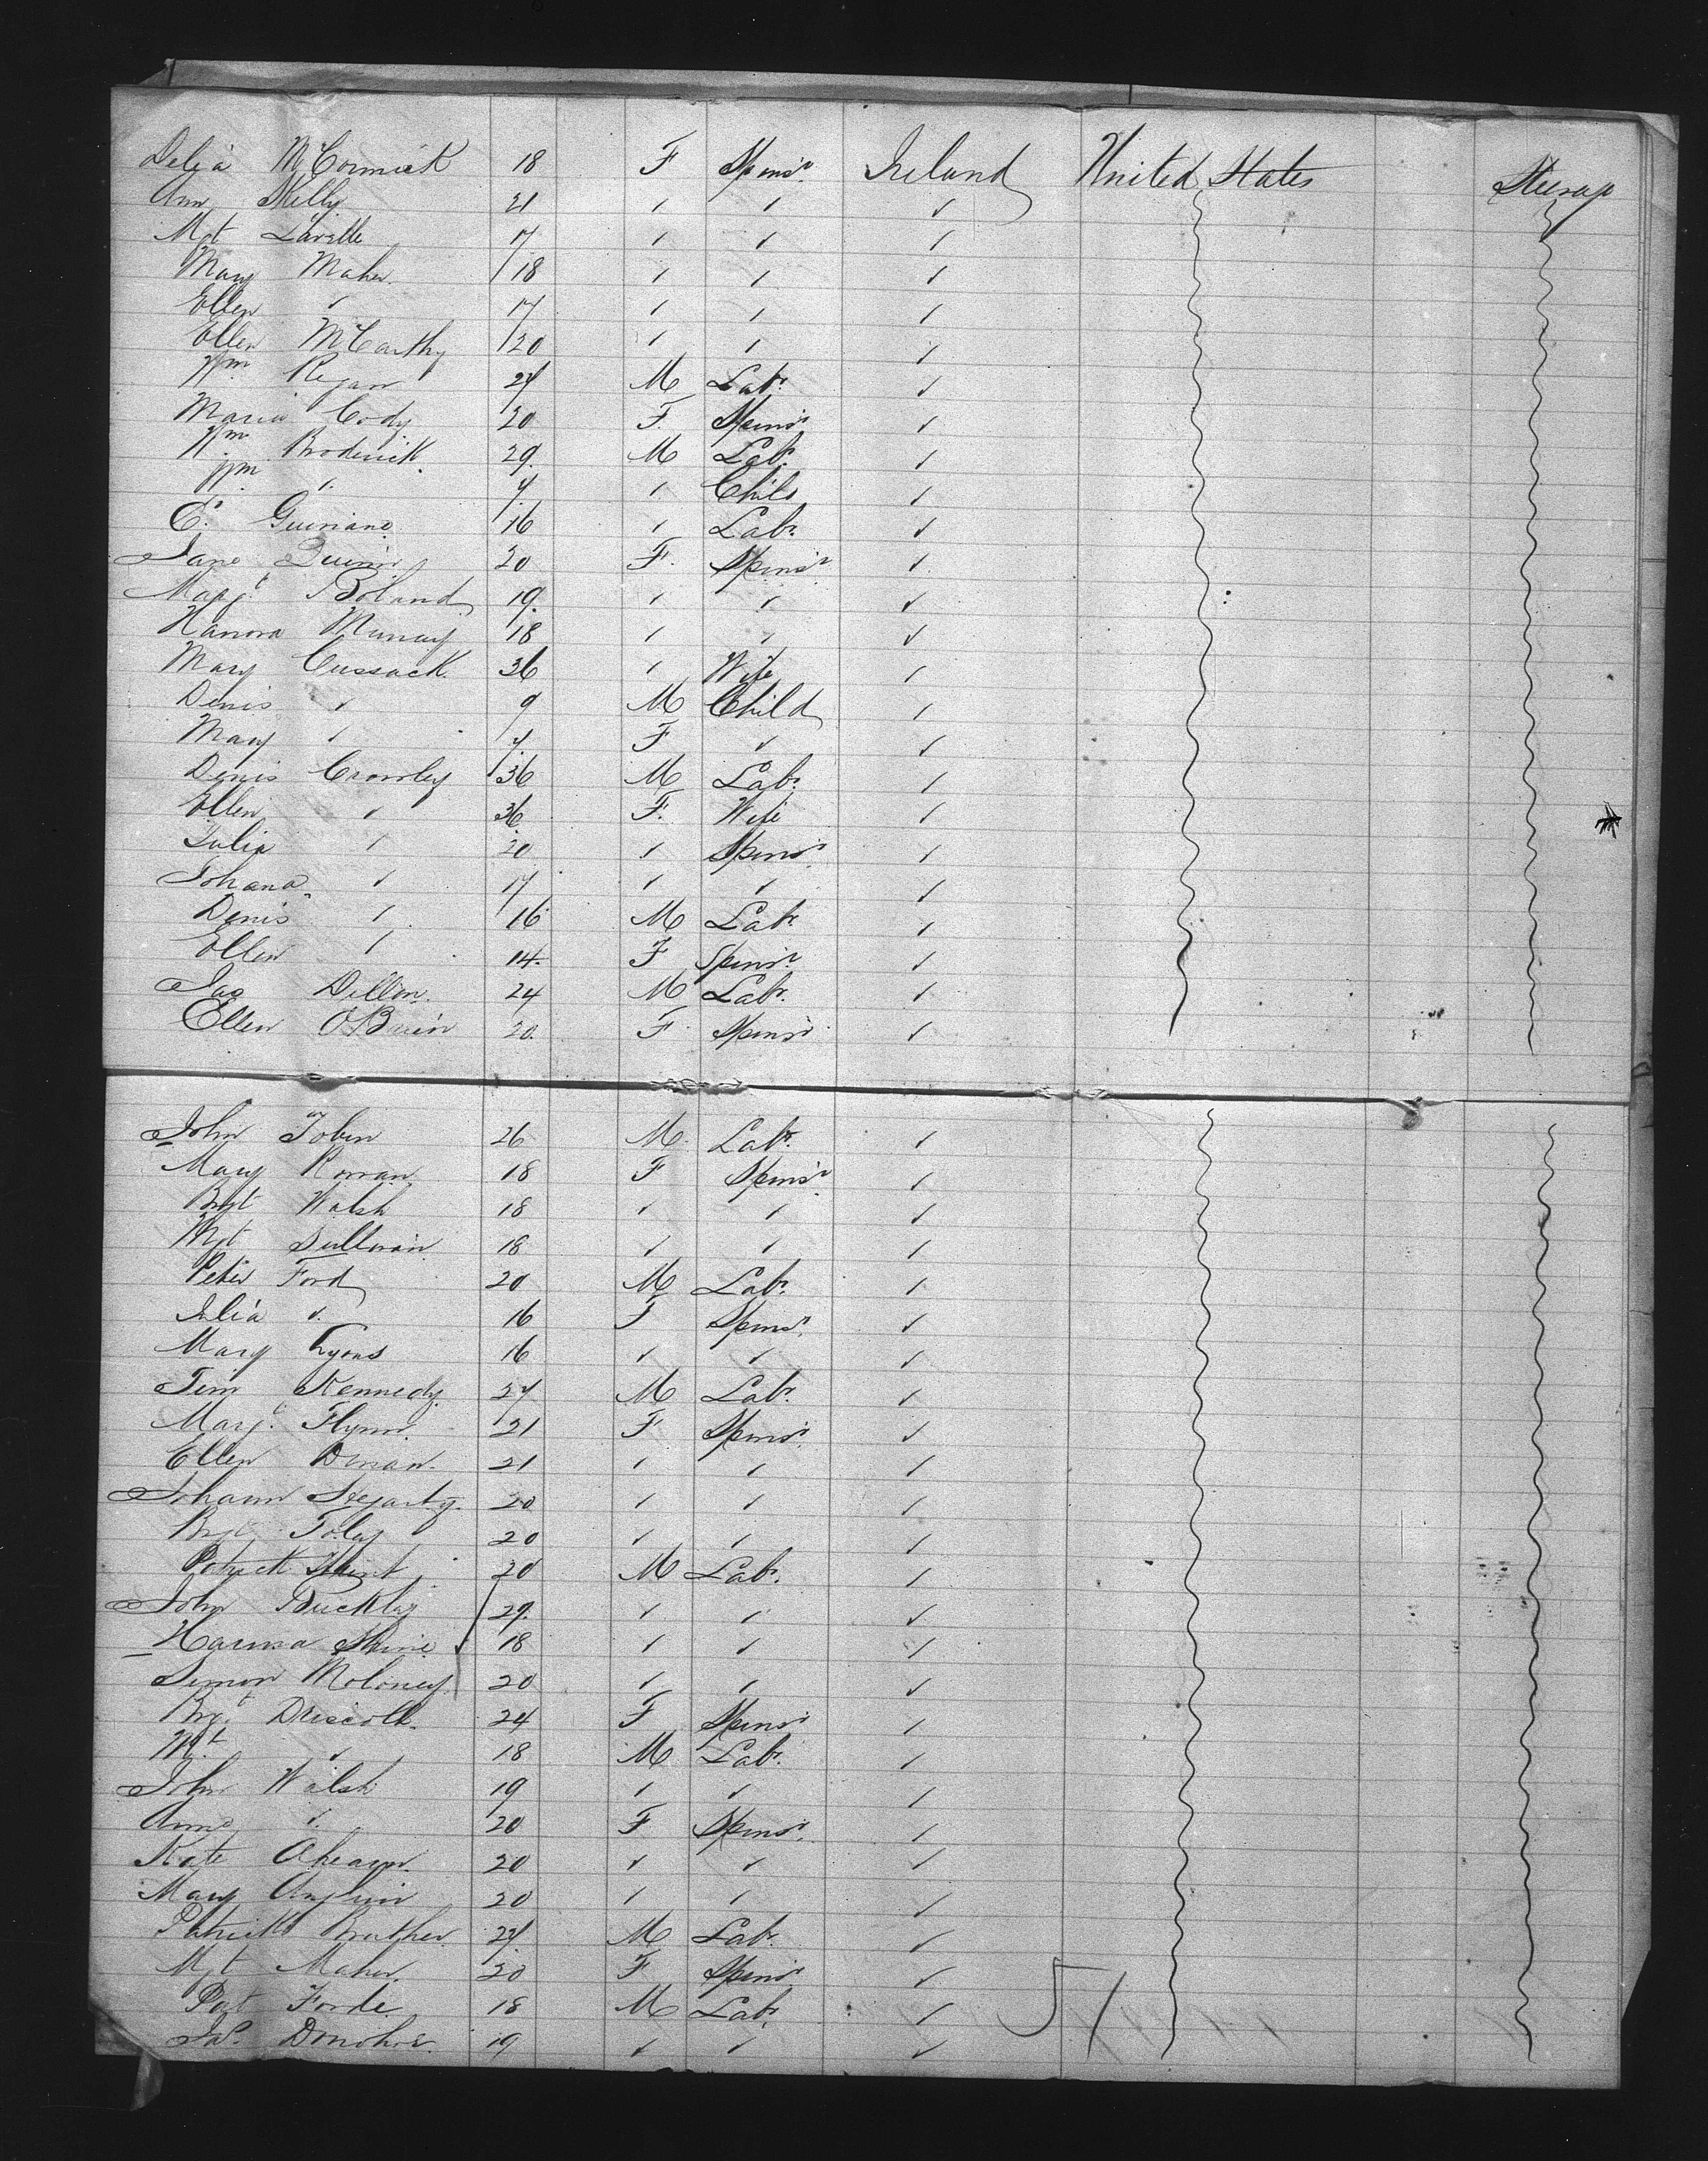 Delia McCormick 18 F Spinsr Ireland United States Steerage
Ann Skelly 21 " " "
Mgt Lavelle 17 " " "
Mary Maher 18 " " "
Ellen " 17 " " "
Ellen McCarthy 20 " " "
Wm Regan 24 M Labr "
Maria Cody 20 F Spinsr "
Wm Broderick 29 M Labr "
Wm " 7 " Child "
C. 16 " Labr "
Jane Quinn 20 F Spinsr "
Margt Boland 19 " " "
Hanora Murray 18 " " "
Mary Cussack 36 " Wife "
Denis " 9 M Child "
Mary " 7 F " "
Denis Crowley 36 M Labr "
Ellen " 36 F Wife "
Julia " 20 " Spinsr "
Johana " 17 " " "
Denis " 16 M Labr "
Ellen " 14 F Spinsr "
Jas Dillon 24 M Labr "
Ellen OBrien 20 F Spinsr "
John Tobin 26 M Labr "
Mary 18 F Spinsr "
Bgt Walsh 18 " " "
Mgt Sullivan 18 " " "
Peter Ford 20 M Labr "
Julia " 16 F Spinsr "
Mary Lyons 16 " " "
Tim Kennedy 27 M Labr "
Margt Flynn 21 F Spinsr "
Ellen 21 " " "
Johann Hegarty 20 " " "
Bgt Foley 20 " " "
Patrick 20 M Labr "
John Buckley 29 " " "
Hanora Shine 18 " " "
Simon Moloney 20 " " "
Brgt Driscoll 24 F Spinsr "
Mt " 18 M Labr "
John Walsh 19 " " "
Anne " 20 F Spinsr "
Kate Ahearn 20 " " "
Mary Anglin 20 " " "
Patrick 27 M Labr "
Mgt Maher 20 F Spinsr "
Pat Forde 18 M Labr "
Jas Donohoe 19 " " "
51